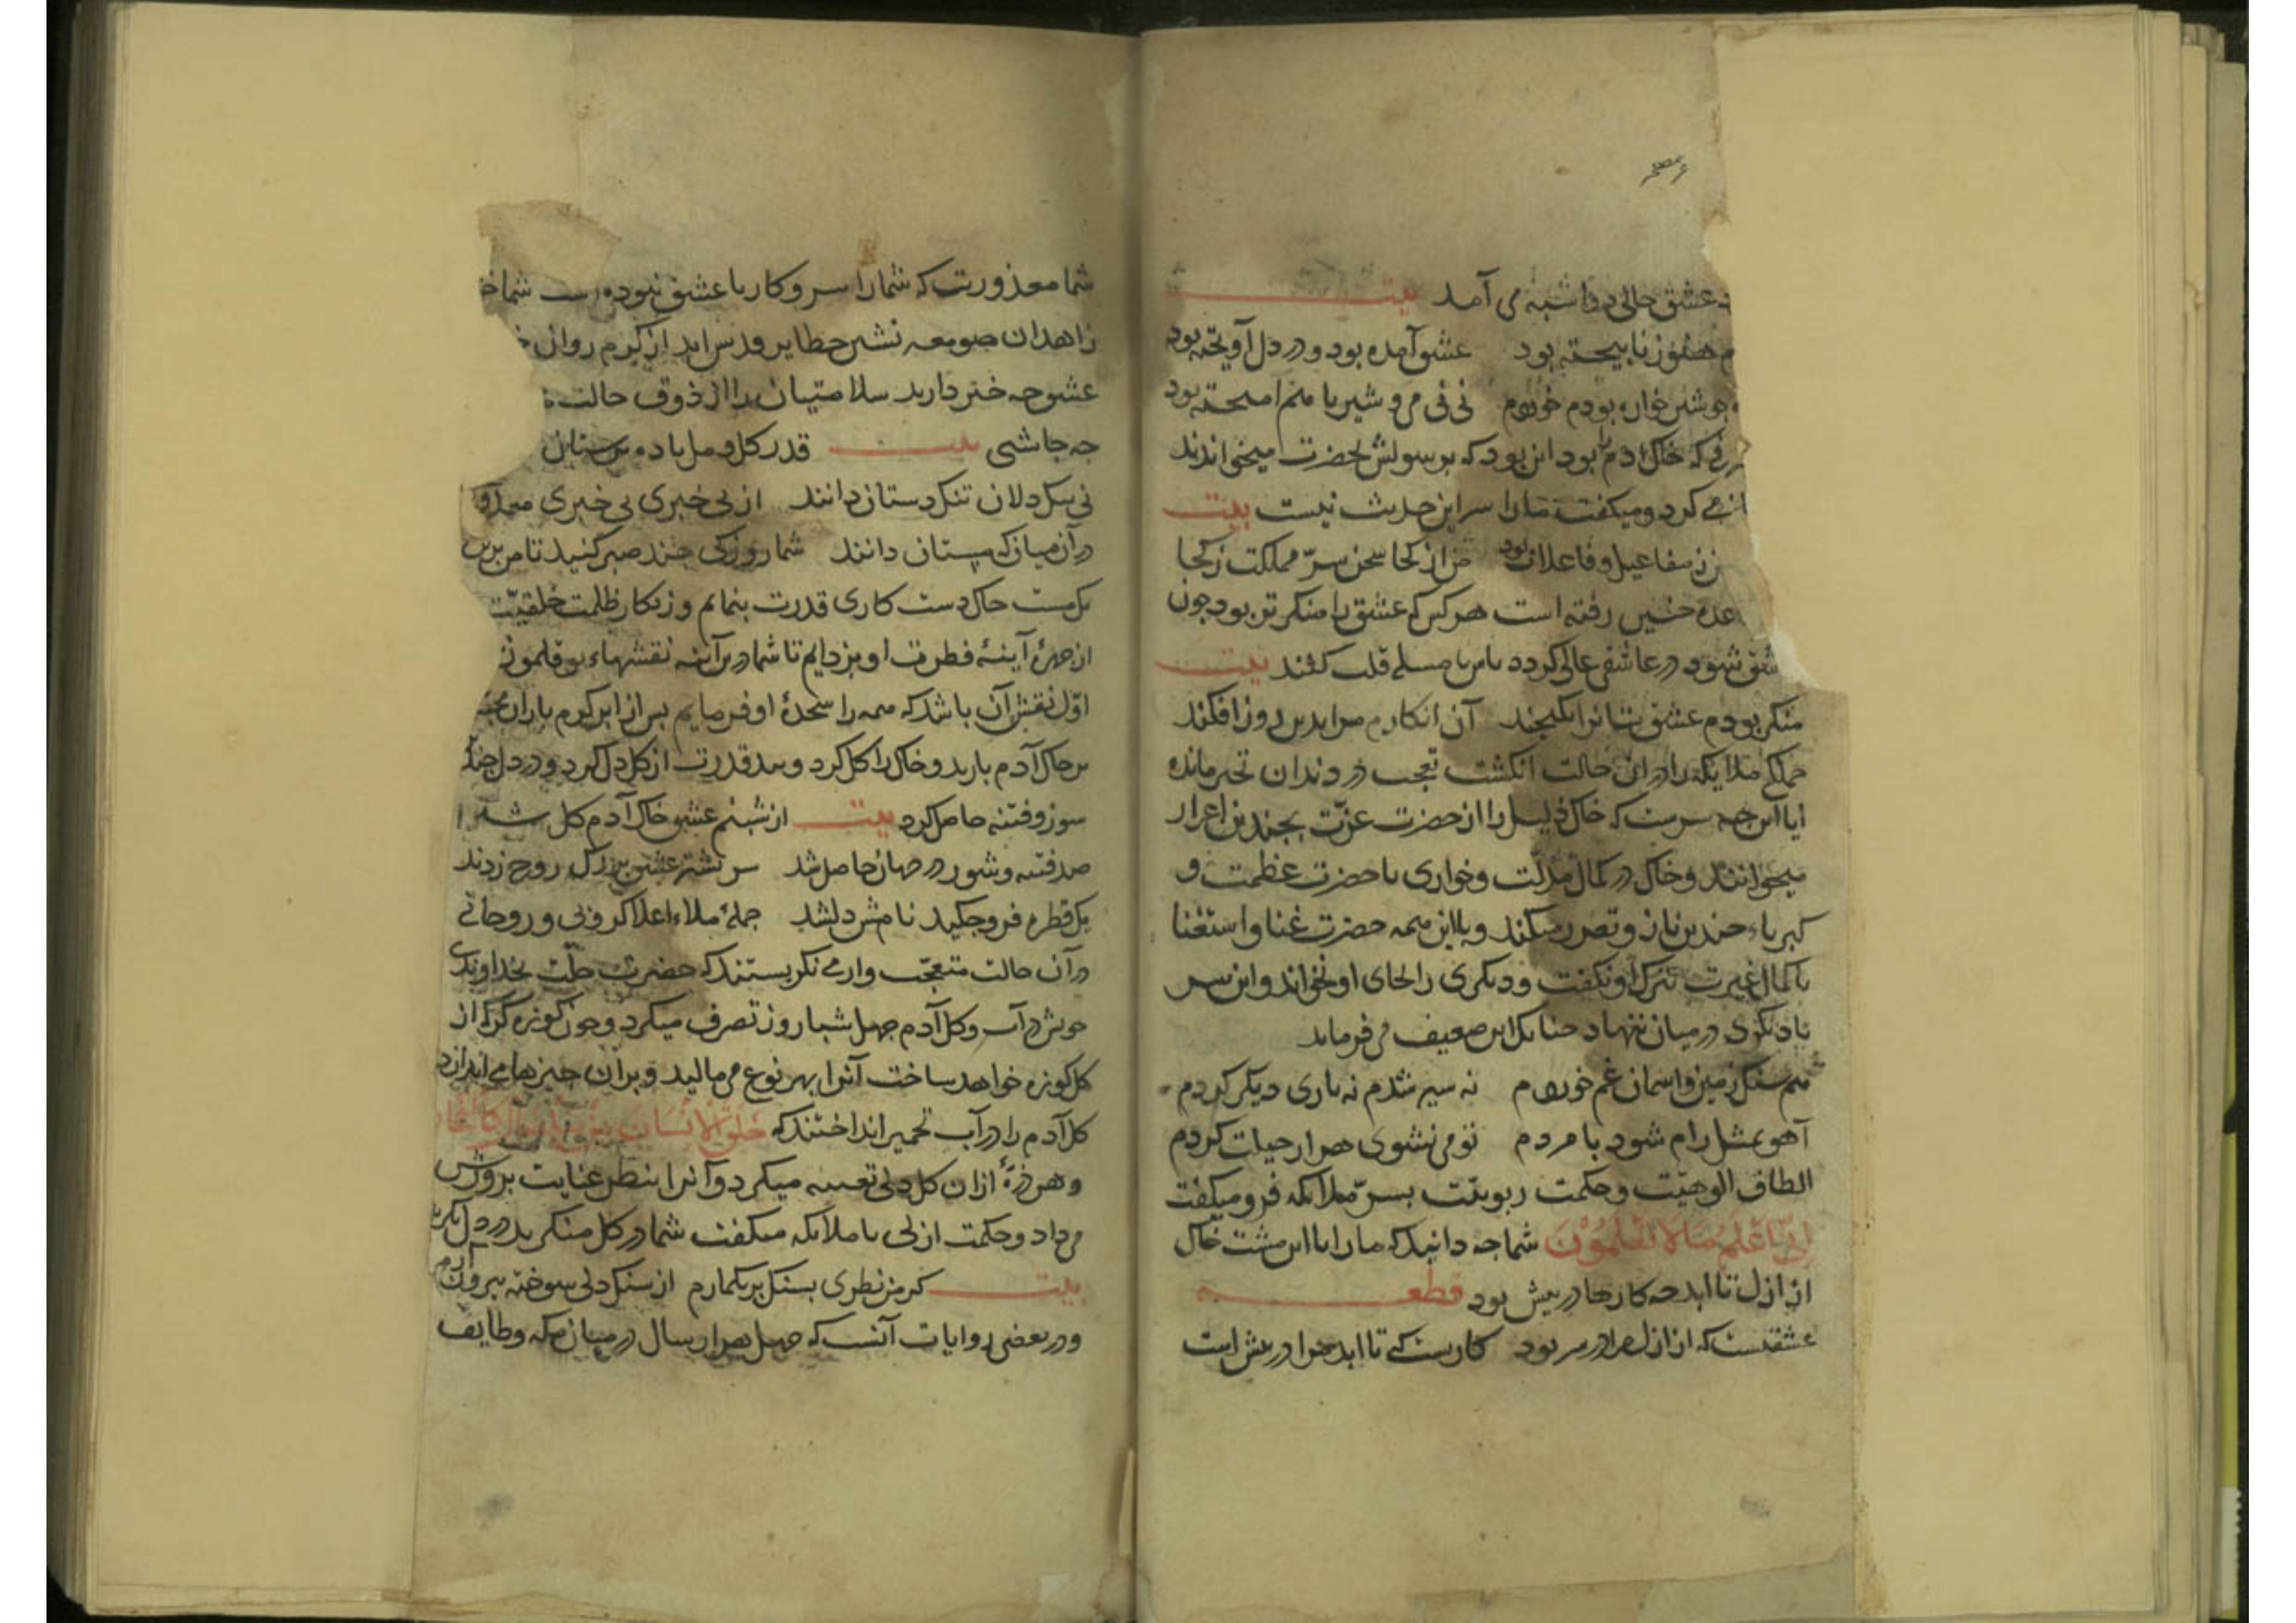 عشق حالی دواسبه می آمد بیت
هنوز نابیخته بود عشق آمده بود و در دل آویخته بود
جو شیر خواره بودم خوردم نی نی می و شیر با هم آمیخته بود
که خاک آدم را بود این بود که برسولش بحضرت میخواندند
می کرد و میکفت ما را سر این حدیث نیست بیت
ز مفاعیل و فاعلات بود من از کجا سخن سرّ مملکت ز کجا
عده چنین رفته است هر کس که عشق را منکرتر بود چون
شود در عاشقی عالی کردد باش تا مسله قلب کنند بیت
منکر بودم عشق بتانرا یکچند آن انکارم مرا بدین روز افکند
جملکی ملایکه را در این حالت انکشت تعجب در دندان تحیر مانده
ایا این چه سرست که خاک ذلیل را از حضرت عزّت بچندین اعزاز
میخوانند و خاک در کمال مذلّت و خواری با حضرت عظمت و
کبریاء چندین ناز و تعزر میکند و با این همه حضرت غنا و استغنا
با کمال غیرت ترک او نکفت و دیکری را بجای او نخواند و این سر
با دیکری در میان ننهاد چنانک این ضعیف می فرماید
هم سنک زمین و آسمان غم خوردم نه سیر شدم نه یاری دیکر کردم
آهو بمثل رام شود با مردم تو می نشوی هزار حیلت کردم
الطاف الوهیّت و حکمت ربوبیّت بسرّ ملایکه فرو میکفت
اِنّی اَعْلَمُ مَا لَا تَعْلَمُوْنَ شما چه دانید که ما را با این مشت خاک
از ازل تا ابد چه کارها در پیش بود قطعه
عشقیست که از ازل مرا در سر بود کاریست که تا ابد مرا در پیش است
شما معذوریت که شما را سر و کار با عشق نبوده است شما
زاهدان صومعه نشین حظایر قدس اید از کرم روان
عشق چه خبر دارید سلامتیان را از ذوق حالت
چه چاشنی بیت قدر کل و مل باده پرستان
نی تنکدلان تنکدستان دانند از بی خبری بی خبری معذور
در آن میان که مستان دانند شما روزکی چند صبر کنید تا من برین
یک مشت خاک دست کاری قدرت بنمایم و زنکار ظلمت خلقیّت
از چهرهٔ آینهٔ فطرت او بزدایم تا شما درین آینه نقشهاء بوقلمون
اوّل نقش آن باشد که همه را سجدهٔ او فرمایم پس از ابر کرم باران
بر خاک آدم بارید و خاک را کل کرد و بید قدرت از کل دل کرد و در دل
سوز و فتنه حاصل کرد بیت از شبنم عشق خاک آدم کل شد
صد فتنه و شور در جهان حاصل شد سر نشتر عشق بر رک روح زدند
یک قطره فرو چکید نامش دل شد جملهٔ ملاء اعلا کروبی و روحانی
در آن حالت متعجّب وار می نکریستند که حضرت جلّت بخداوندی
خویش در آب و کل آدم چهل شبا روز تصرف میکرد و چون کوزه کر که از
کل کوزه خواهد ساخت آنرا بهر نوع می مالید و بر آن چیزها می اندازد
کل آدم را در آب تخمیر انداختند که خَلَقَ الْاِنْسَانَ
و هر ذرّهٔ از آن کل دلی تعبیه میکرد و آنرا بنظر عنایت پرورش
می داد و حکمت ازلی با ملایکه میکفت شما در کل منکرید در دل نکرید
بیت کر من نظری بسنک بر بکمارم از سنک دلی سوخته بیرون آرم
و در بعضی روایات آنست که چهل هزار سال در میان مکه و طایف